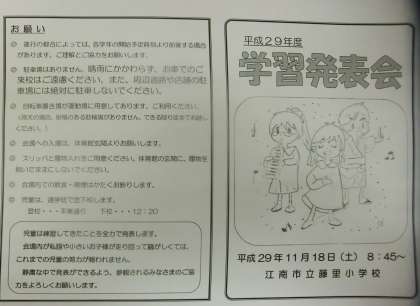 お願い
◎ 進行の都合によっては、各学年の開始予定時刻より前後する場合
があります。ご理解とご協力をお願いします。
◎ 駐車場はありません。晴雨にかかわらず、お車でのご
来校はご遠慮ください。また、周辺道路や店舗の駐
車場には絶対に駐車しないでください。
◎ 自転車置き場が運動場に用意してあります。ご利用ください。
◎ 会場への入場は、体育館玄関よりお願いします。
◎ スリッパと履物入れをご用意ください。体育館の玄関に、履物を
◎ 会場内での飲食・喫煙はかたくお断りします。
◎ 児童は、通学班で登下校します。
登校・・・平常通り 下校・・・12:20
児童は練習してきたことを全力で発表します。
会場内が私語や小さいお子様が走り回って騒がしくては、
これまでの児童の努力が報われません。
静粛な中で発表ができるよう、参観されるみなさまのご協
力をよろしくお願いします。
平成29年度
学習発表会
平成29年11月18日(土) 8:45~
江南市立藤里小学校